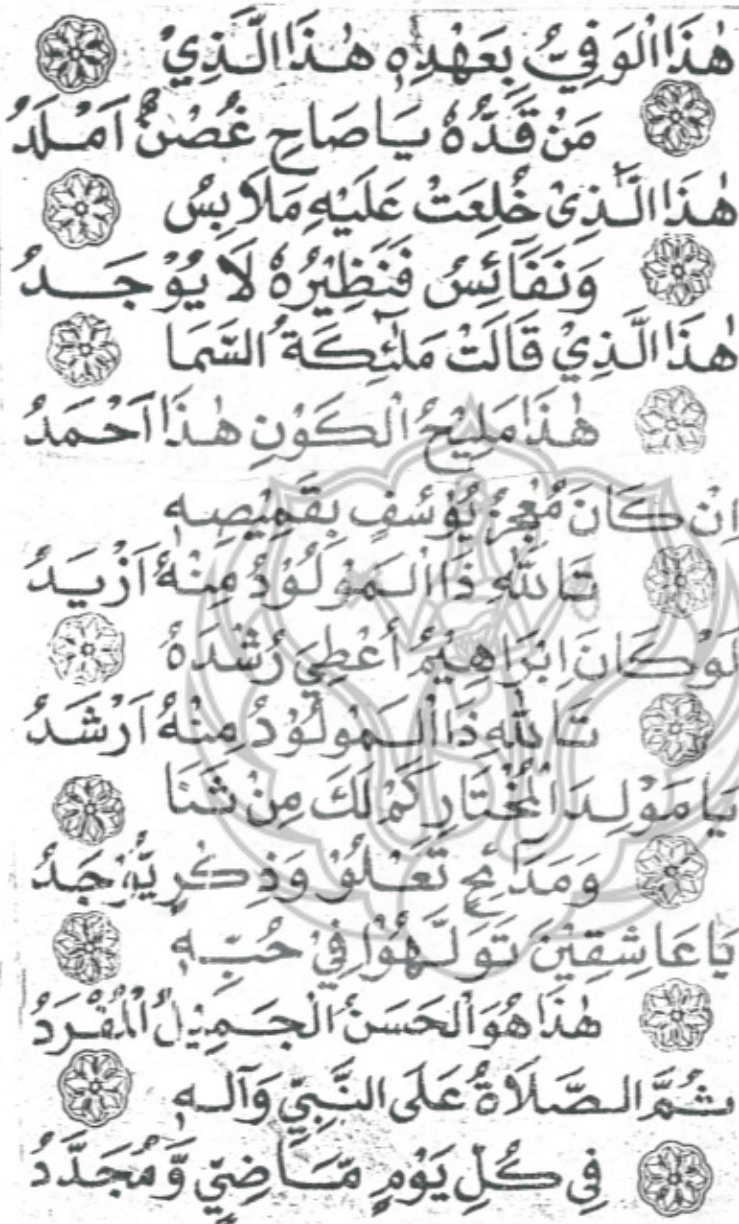 هٰذَا الْوَفِيُّ بِعَهْدِهٖ هٰذَا الَّذِيْ
مَنْ قَدُّهٗ يَا صَاحِ غُصْنٌ اَمْلَدُ
هٰذَا الَّذِيْ خُلِعَتْ عَلَيْهِ مَلَابِسُ
وَنَفَآئِسُ فَنَظِيْرُهٗ لَا يُوْجَدُ
هٰذَا الَّذِيْ قَالَتْ مَلٰٓئِكَةُ السَّمَا
هٰذَا مَلِيْحُ الْكَوْنِ هٰذَا اَحْمَدُ
اِنْ كَانَ مُعْجِزُ يُوْسُفٍ بِقَمِيْصِهٖ
تَاللّٰهِ ذَا الْمَوْلُوْدُ مِنْهُ اَزْيَدُ
لَوْ كَانَ اِبْرَاهِيْمُ أُعْطِيَ رُشْدَهٗ
تَاللّٰهِ ذَا الْمَوْلُوْدُ مِنْهُ اَرْشَدُ
يَا مَوْلِدَ الْمُخْتَارِ كَمْ لَكَ مِنْ ثَنَا
وَمَدَآئِحٍ تَعْلُوْ وَذِكْرٍ يُّوْجَدُ
يَا عَاشِقِيْنَ تَوَلَّهُوْا فِيْ حُبِّهٖ
هٰذَا هُوَ الْحَسَنُ الْجَمِيْلُ الْمُفْرَدُ
ثُمَّ الصَّلَاةُ عَلَى النَّبِيِّ وَآلِهٖ
فِي كُلِّ يَوْمٍ مَّاضِيٍّ وَّمُجَدَّدُ